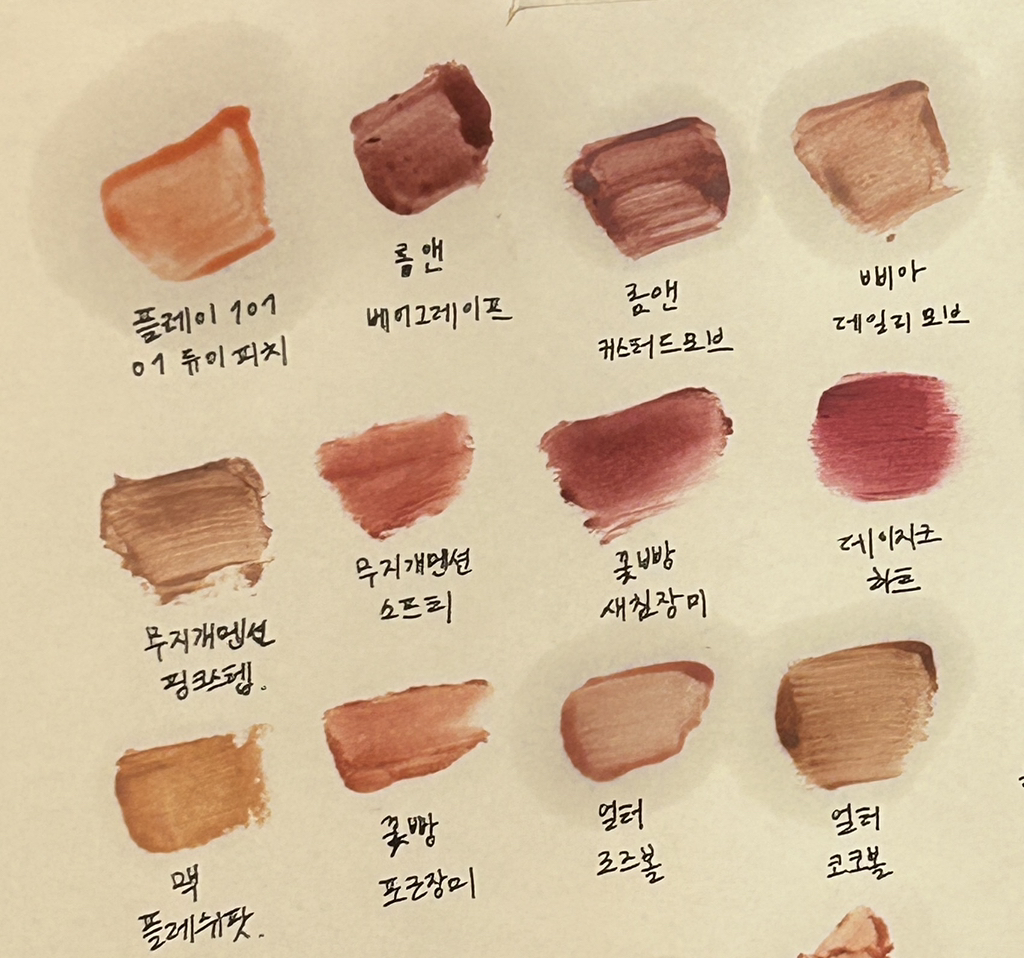 플레이 101
01 듀이피치
롬앤
베어그레이프
롬앤
커스터드모브
삐아
데일리모브
무지개멘션
핑크스텝.
무지개멘션
소프티
꽃빵
새침장미
데이지크
하트
맥
플레쉬팟.
꽃빵
포근장미
얼터
로즈볼
얼터
코코볼